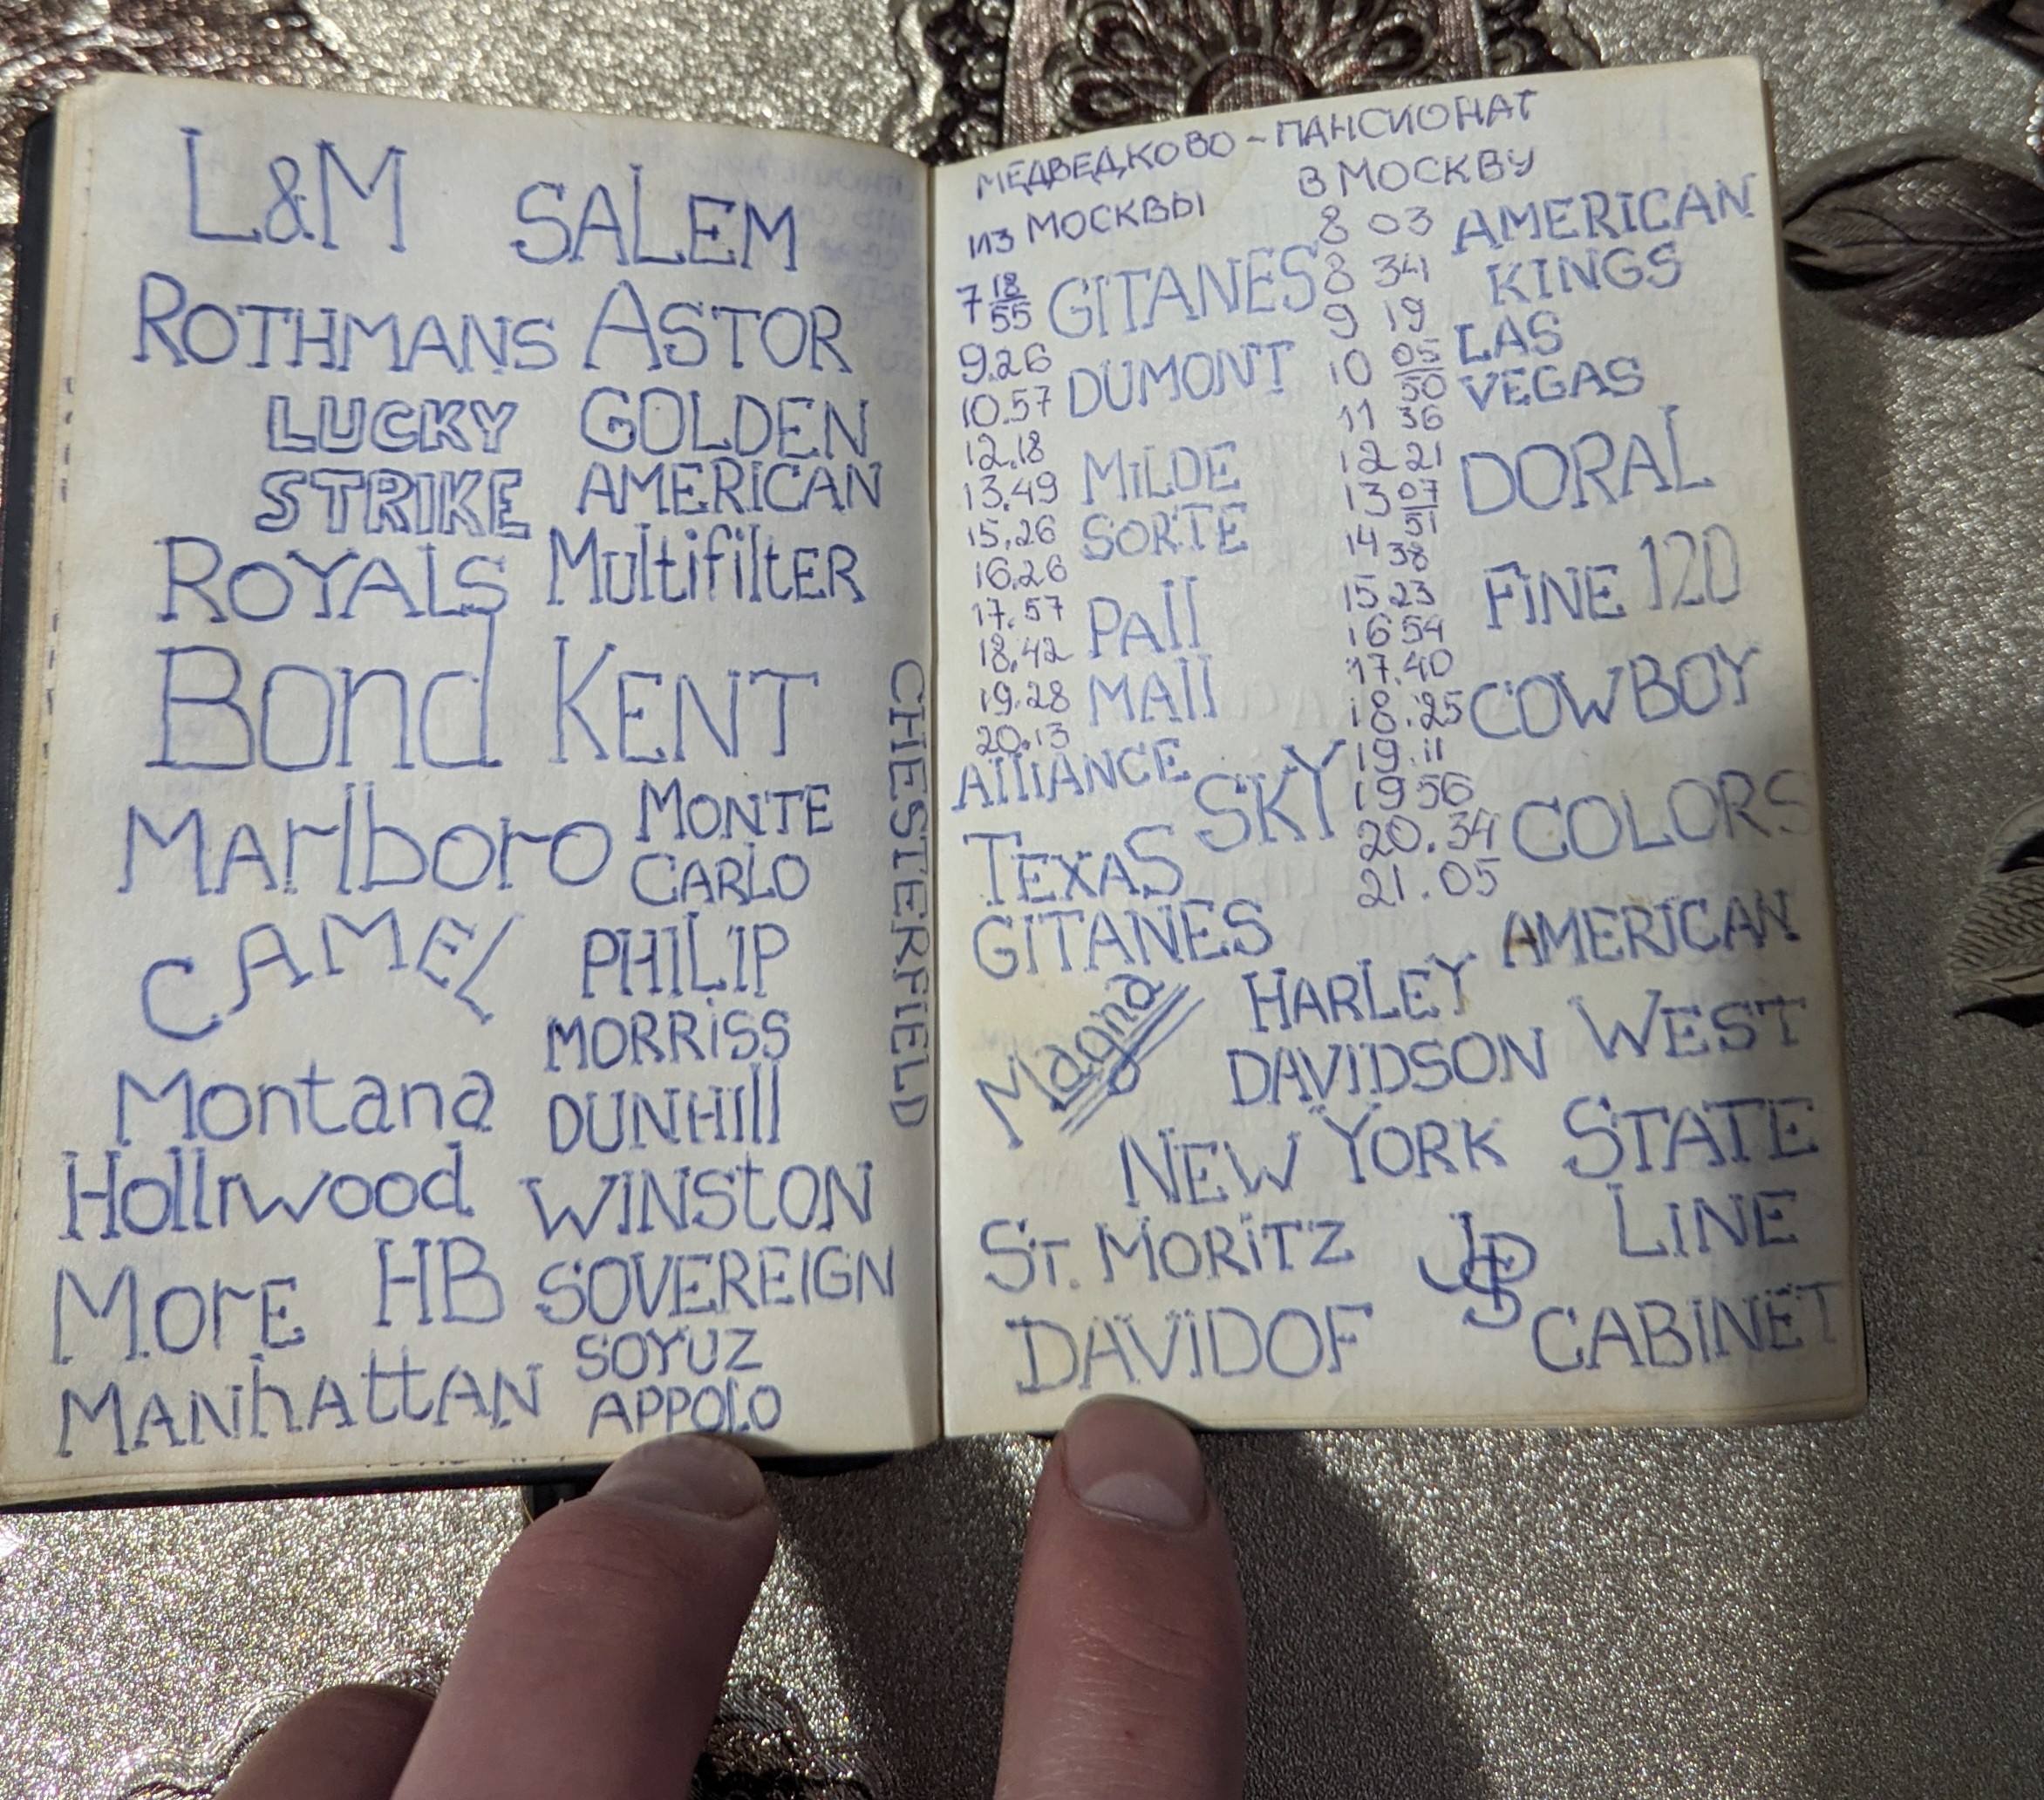 L&M SALEM
ROTHMANS ASTOR
LUCKY GOLDEN
STRIKE AMERICAN
ROYALS MultifiltER
Bond KENT
MArlboro MONTE
CARLO
CAMEL PHILIP
MORRiSS
Montana DUNHill
Hollrwood WINStON
MorE HB SOVEREIGN
SOYUZ
MANhAttAN APPOLO
CHESTERFIELD
МЕДВЕДКОВО - ПАНСИОНАТ
ИЗ МОСКВЫ В МОСКВУ
7 18 GITANES 8 03 AMERICAN
55 8 34 KINGS
9.26 9 19 LAS
10.57 DUMONT 10 05 VEGAS
50
12.18 11 36
13.49 MiLDE 12 21 DORAL
15.26 SORTE 13 07
51
16.26 14 38 FiNE 120
17.57 PAll 15.23
18.42 16 54
19.28 MAll 17.40
20.13 18.25 COWBOY
AlliANCE SKY 19.11
19 56
TEXAS 20.34 COLORS
GITANES 21.05
Magna HARLEY AMERICAN
DAVIDSON WEST
NEW YORK STATE
ST. MORiTZ JPS LINE
DAVIDOF CABINET